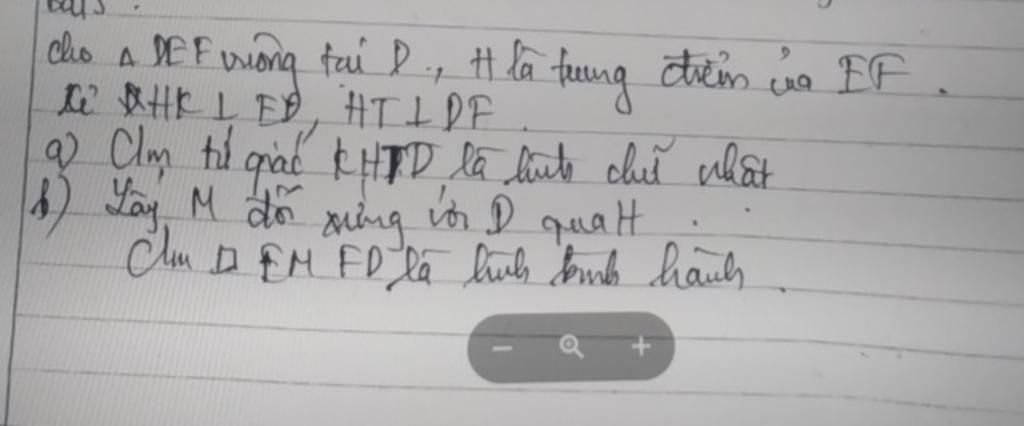 Bài 3 .
cho Δ DEF vuông tại D., H là trung điểm của EF.
Kẻ HK ⊥ ED, HT ⊥ DF.
a) Cm tứ giác KHTD là hình chữ nhật
b) Lấy M đối xứng với D qua H.
Cm □ EMFD là hình bình hành.